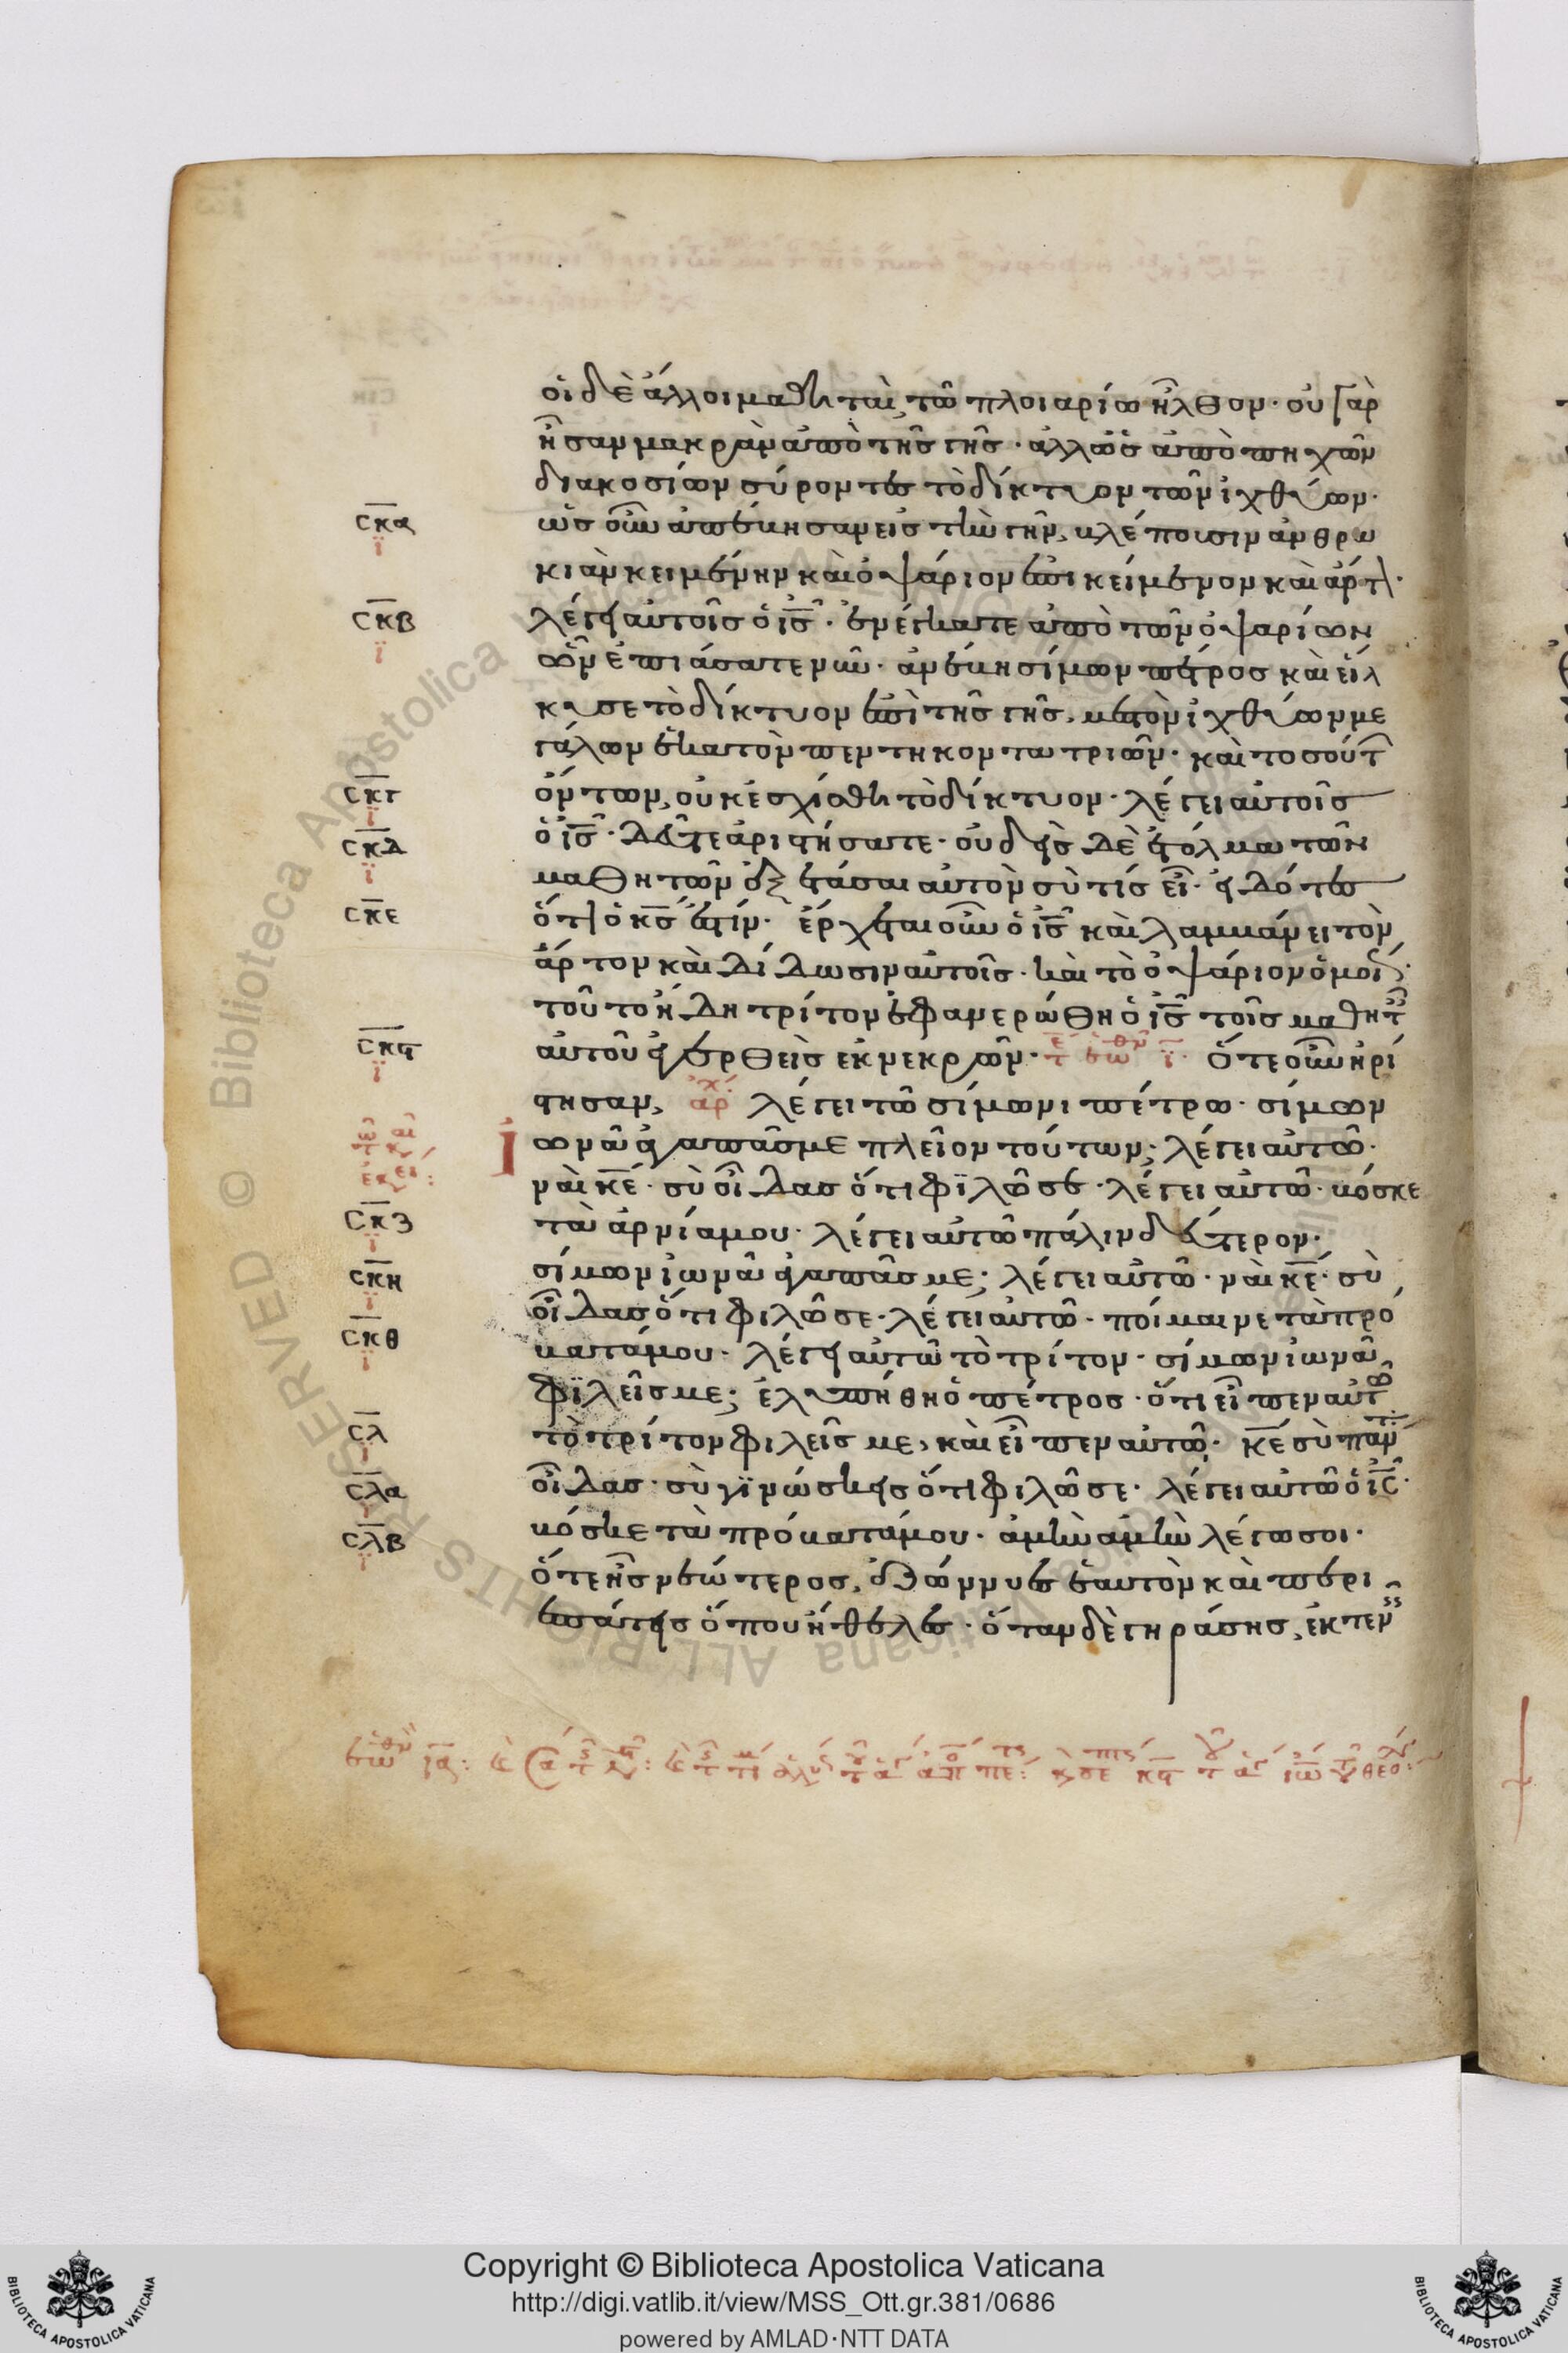 οἱ δὲ ἄλλοι μαθηταὶ, τῶ πλοιαρίω ἦλθον· οὐ γὰρ
ἦσαν μακρὰν ἀπὸ τῆς γῆς· ἀλλ ὡς ἀπὸ πηχῶν
διακοσίων σύροντες τὸ δίκτυον τῶν ἰχθύων·
σκα ὡς οὖν ἀπέβησαν εἰς τὴν γῆν, βλέπουσιν ἀνθρα
ϊ
κιὰν κειμένην καὶ ὀψάριον ἐπικείμενον καὶ ἄρτ·
σκβ λέγει αὐτοῖς ὁ ις· ἐνέγκατε ἀπὸ τῶν ὀψαρίων
ϊ
ὧν ἐπιάσατε νῦν· ἀνέβη σίμων πέτρος καὶ εἵλ
κυσε τὸ δίκτυον ἐπὶ τῆς γῆς, μεστὸν ἰχθύων με
γάλων ἑκατὸν πεντηκοντατριῶν· καὶ τοσούτ
σκγ ὄντων, οὐκ ἐσχίσθη τὸ δίκτυον· λέγει αὐτοῖς
ϊ
σκδ ὁ ις· δεῦτε ἀριστήσατε· οὐδεὶς δὲ ἐτόλμα τῶν
ϊ
μαθητῶν ἐξετάσαι αὐτὸν σὺ τίς εἶ· εἰδότες
σκε ὅτι ὁ κς ἐστίν· ἔρχεται οὖν ὁ ις καὶ λαμβάνει τὸν
ἄρτον καὶ δίδωσιν αὐτοῖς· καὶ τὸ ὀψάριον ὁμοί·
τοῦτο ἤδη τρίτον ἐφανερώθη ὁ ις τοῖς μαθητ
σκϛ αὐτοῦ ἐγερθεὶς ἐκ νεκρῶν· ὅτε οὖν ἠρί
ϊ
στησαν, λέγει τῶ σίμωνι πέτρω· σίμων
ἰωνᾶ ἀγαπᾶς με πλεῖον τούτων; λέγει αὐτῶ·
ναὶ κε· σὺ οἶδας ὅτι φϊλῶ σε· λέγει αὐτῶ· βόσκε
σκζ τὰ ἀρνία μου· λέγει αὐτῶ πάλιν δεύτερον·
ϊ
σκη σίμων ἰωνᾶ ἀγαπᾶς με; λέγει αὐτῶ· ναὶ κε· σὺ
ϊ
οἶδας ὅτι φιλῶ σε· λέγει αὐτῶ· ποίμαινε τὰ πρό
σκθ βατά μου· λέγει αὐτῶ τὸ τρίτον· σίμων ἰωνᾶ
ϊ
φϊλεῖς με; ἐλυπήθη ὁ πέτρος· ὅτι εἶπεν αὐτῶ
σλ τὸ τρίτον φιλεῖς με, καὶ εἶπεν αὐτῶ· κε σὺ πάντ
ϊ
σλα οἶδας· σὺ γϊνώσκεις ὅτι φιλῶ σε· λέγει αὐτῶ ὁ ις·
ϊ
σλβ βόσκε τὰ πρόβατά μου· ἀμὴν ἀμὴν λέγω σοι·
ϊ
ὅτε ἦς νεώτερος, ἐζώννυες ἑαυτὸν καὶ περι
επάτεις ὅπου ἤθελες· ὅταν δὲ γηράσης, ἐκτεν
Copyright © Biblioteca Apostolica Vaticana
http://digi.vatlib.it/view/MSS_Ott.gr.381/0686
powered by AMLAD·NTT DATA